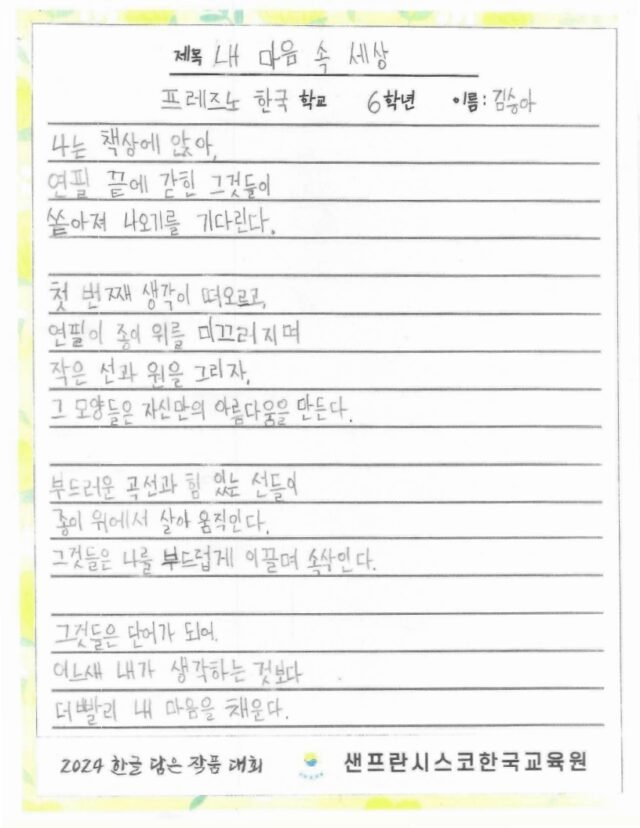 제목 내 마음 속 세상
프레즈노 한국 학교 6학년 이름: 김승아
나는 책상에 앉아,
연필 끝에 갇힌 그것들이
쏟아져 나오기를 기다린다.
첫 번째 생각이 떠오르고,
연필이 종이 위를 미끄러지며
작은 선과 원을 그리자,
그 모양들은 자신만의 아름다움을 만든다.
부드러운 곡선과 힘 있는 선들이
종이 위에서 살아 움직인다.
그것들은 나를 부드럽게 이끌며 속삭인다.
그것들은 단어가 되어.
어느새 내가 생각하는 것보다
더빨리 내 마음을 채운다.
2024 한글 담은 작품 대회 샌프란시스코한국교육원